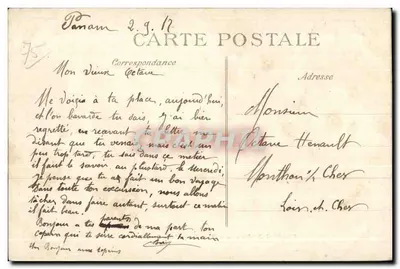 Panam 2.9.17
75
CARTE POSTALE
Correspondance
Adresse
Mon vieux Octave
Me voici à ta place, aujourd'hui,
et l'on bavarde tu sais, j'ai bien
regretté, en recevant ta lettre, me
disant que tu venais, mais c'est un
peu trop tard, tu sais dans ce métier
il faut le savoir au plus tard, le
Je pense que tu as fait un bon voyage
Dans toute ton excursion, nous allons
tâcher d'en faire autant, surtout ce matin
il fait beau.
Bonjour à tes parents de ma part ton
copain qui te serre cordialement la main
un Bonjour aux copains
Monsieur
Octave Henault
Monthou s/ Cher
Loir et Cher